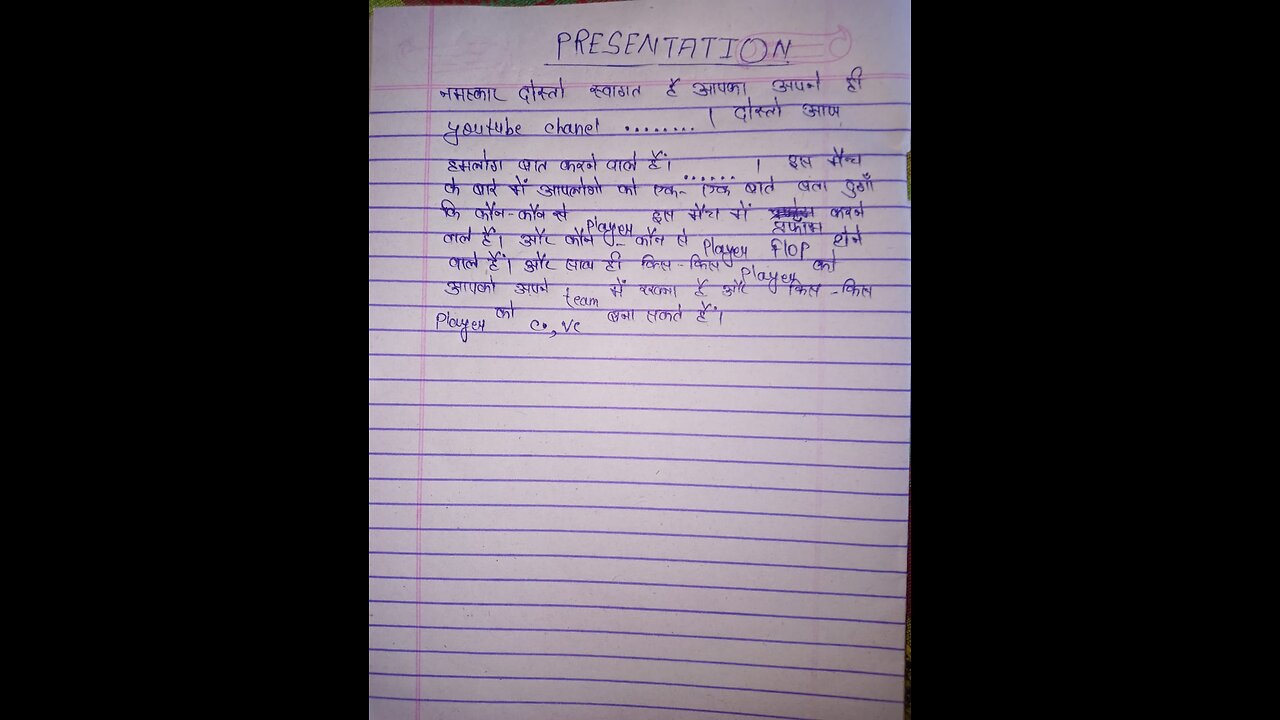 PRESENTATION
नमस्कार दोस्तो स्वागत है आपका अपने ही
youtube chanel ........ । दोस्तो आज
हमलोग बात करने वाले हैं। ...... । इस मैच
के बारे में आपलोगो को एक-एक बाते बता दुगाँ
कि कौन-कौन से Player इस मैच में करने
वाले हैं। और कौन-कौन से Player flop होने
वाले हैं। और साथ ही किस-किस Player को
आपको अपने team में रखना है और किस-किस
Player को c., vc बना सकते हैं।